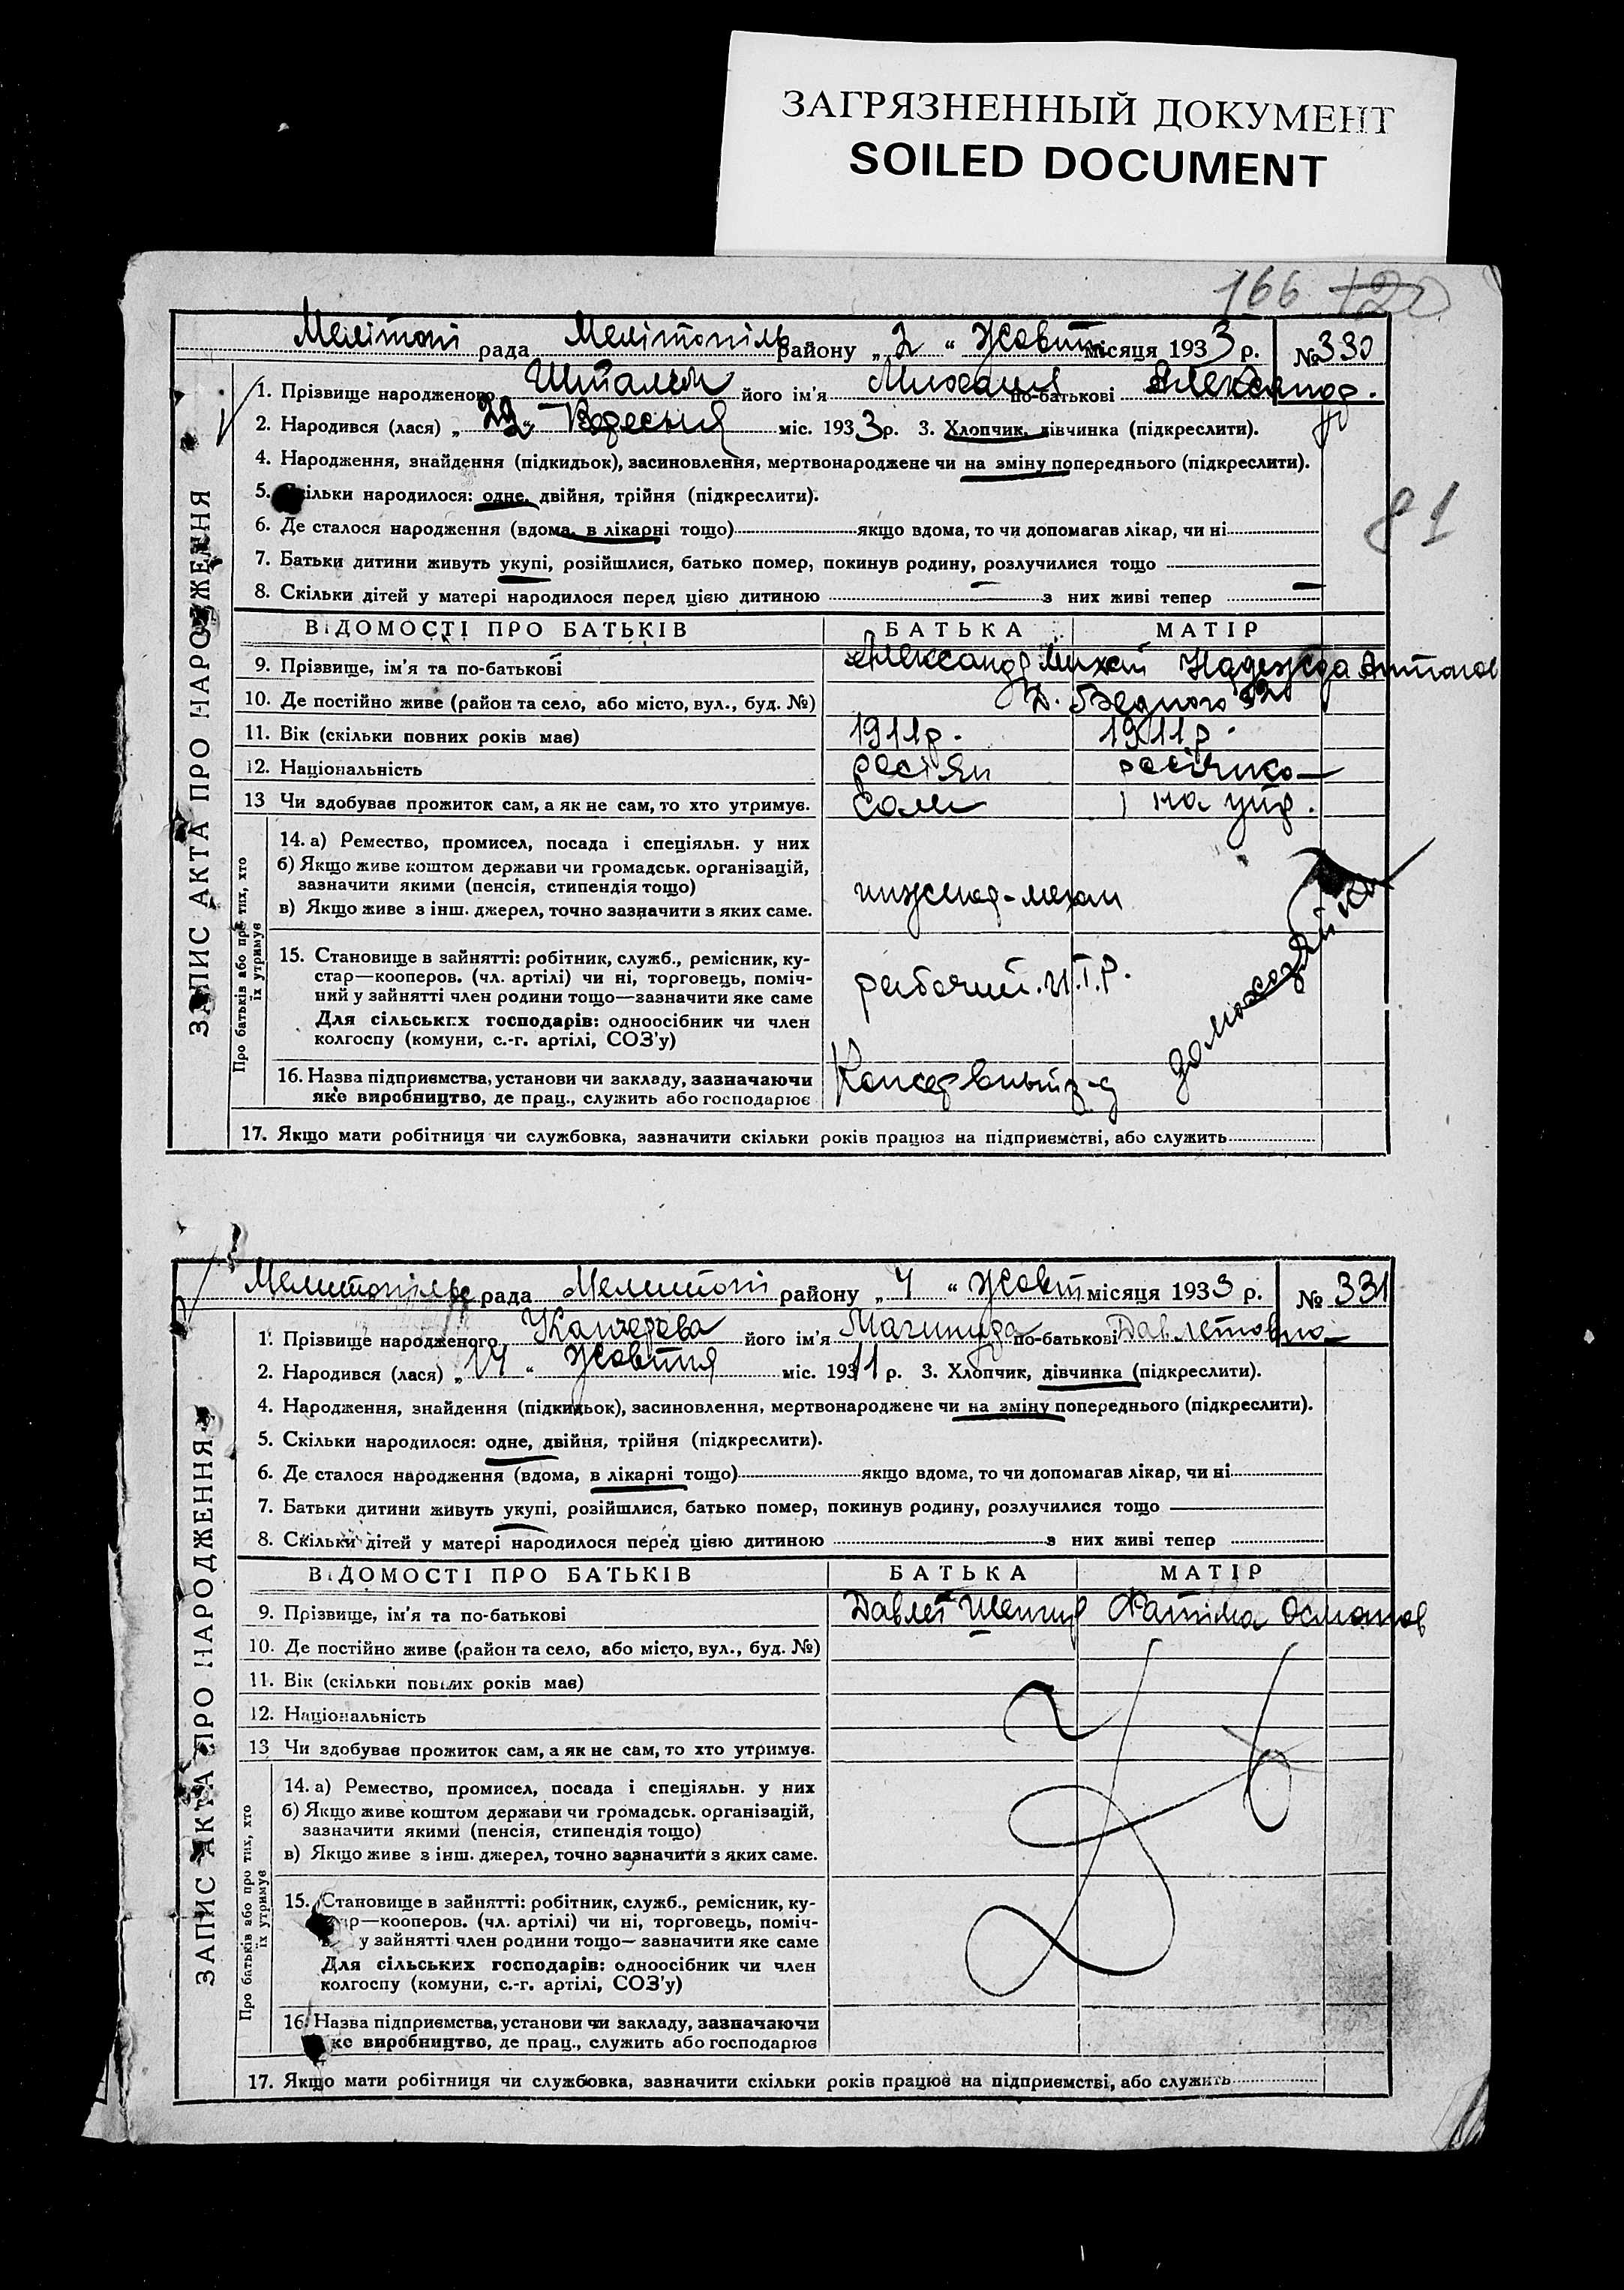 ЗАГРЯЗНЕННЫЙ ДОКУМЕНТ
SOILED DOCUMENT
166 120
Мелітопі рада Мелітопіль району „ 2 “ Жовтн місяця 1933 р. № 330
ЗАПИС АКТА ПРО НАРОДЖЕННЯ
1. Прізвище народженого його ім'я Михаил по-батькові Александр.
2. Народився (лася) „ Вересня міс. 1933 р. 3. Хлопчик, дівчинка (підкреслити).
4. Народження, знайдення (підкидьок), засиновлення, мертвонароджене чи на зміну попереднього (підкреслити).
5. Скільки народилося: одне, двійня, трійня (підкреслити).
81
6. Де сталося народження (вдома, в лікарні тощо) якщо вдома, то чи допомагав лікар, чи ні
7. Батьки дитини живуть укупі, розійшлися, батько помер, покинув родину, розлучилися тощо
8. Скільки дітей у матері народилося перед цією дитиною — з них живі тепер —
ВІДОМОСТІ ПРО БАТЬКІВ БАТЬКА МАТІР
9. Прізвище, ім'я та по-батькові Александр Михай Надежда Антонов
10. Де постійно живе (район та село, або місто, вул., буд. №) Д. Бедного 92
11. Вік (скільки повних років має) 1911р. 1911р.
12. Національність росіян росіянка
13 Чи здобуває прожиток сам, а як не сам, то хто утримує. Сам на утр.
Про батьків або про тих, хто їх утримує
14. а) Ремество, промисел, посада і спеціяльн. у них
б) Якщо живе коштом держави чи громадськ. організацій,
зазначити якими (пенсія, стипендія тощо)
в) Якщо живе з інш. джерел, точно зазначити з яких саме.
инженер-механ
домохозяйка
15. Становище в зайнятті: робітник, служб., ремісник, ку-
стар—кооперов. (чл. артілі) чи ні, торговець, поміч-
ний у зайнятті член родини тощо—зазначити яке саме
рабочий. И.Т.Р.
Для сільських господарів: одноосібник чи член
колгоспу (комуни, с.-г. артілі, СОЗ'у)
16. Назва підприємства, установи чи закладу, зазначаючи
яке виробництво, де прац., служить або господарює
Консервный з-д
17. Якщо мати робітниця чи службовка, зазначити скільки років працює на підприємстві, або служить
Мелитопільс рада Мелитопі району „ 4 “ Жовтн місяця 1933 р. № 331
ЗАПИС АКТА ПРО НАРОДЖЕННЯ
1. Прізвище народженого його ім'я по-батькові Давлетовна
2. Народився (лася) „ 14 “ Жовтня міс. 1911 р. 3. Хлопчик, дівчинка (підкреслити).
4. Народження, знайдення (підкидьок), засиновлення, мертвонароджене чи на зміну попереднього (підкреслити).
5. Скільки народилося: одне, двійня, трійня (підкреслити).
6. Де сталося народження (вдома, в лікарні тощо) якщо вдома, то чи допомагав лікар, чи ні
7. Батьки дитини живуть укупі, розійшлися, батько помер, покинув родину, розлучилися тощо
8. Скільки дітей у матері народилося перед цією дитиною з них живі тепер
ВІДОМОСТІ ПРО БАТЬКІВ БАТЬКА МАТІР
9. Прізвище, ім'я та по-батькові Давлет Фатіма Османов
10. Де постійно живе (район та село, або місто, вул., буд. №)
11. Вік (скільки повних років має)
12. Національність
13 Чи здобуває прожиток сам, а як не сам, то хто утримує.
Про батьків або про тих, хто їх утримує
14. а) Ремество, промисел, посада і спеціяльн. у них
б) Якщо живе коштом держави чи громадськ. організацій,
зазначити якими (пенсія, стипендія тощо)
в) Якщо живе з інш. джерел, точно зазначити з яких саме.
15. Становище в зайнятті: робітник, служб., ремісник, ку-
стар—кооперов. (чл. артілі) чи ні, торговець, поміч-
у зайнятті член родини тощо—зазначити яке саме
Для сільських господарів: одноосібник чи член
колгоспу (комуни, с.-г. артілі, СОЗ'у)
16. Назва підприємства, установи чи закладу, зазначаючи
яке виробництво, де прац., служить або господарює
17. Якщо мати робітниця чи службовка, зазначити скільки років працює на підприємстві, або служить